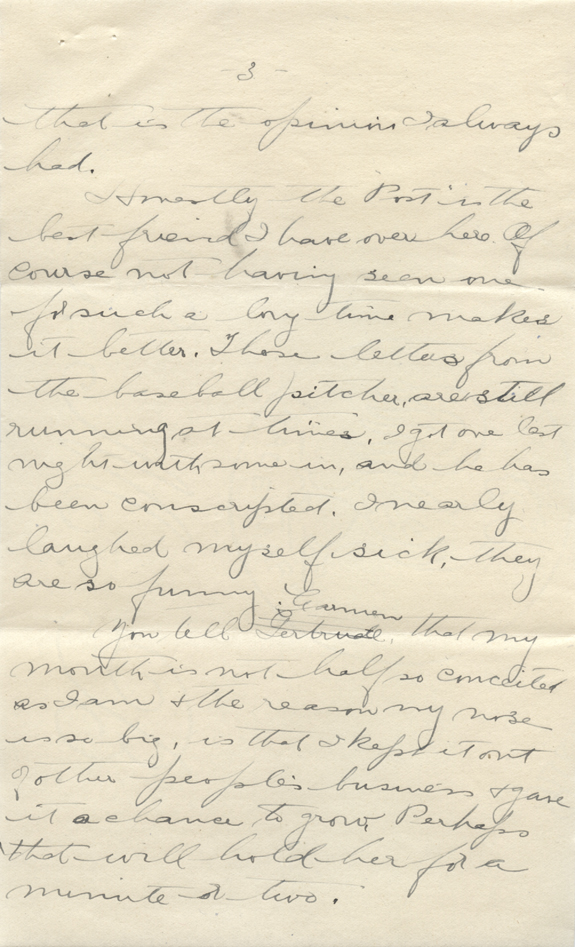 -3-
that is the opinion I always
had.
Honestly the Post is the
best friend I have over here. Of
course not having seen one
for such a long time makes
it better. Those letters from
the baseball pitcher, are still
running at times, I got one last
night with some in, and he has
been conscripted. I nearly
laughed myself sick, they
are so funny.
Carmen
You tell Gertrude, that my
mouth is not half so conceited
as I am & the reason my nose
is so big, is that I kept it out
of other people's business & gave
it a chance to grow. Perhaps
that will hold her for a
minute or two.